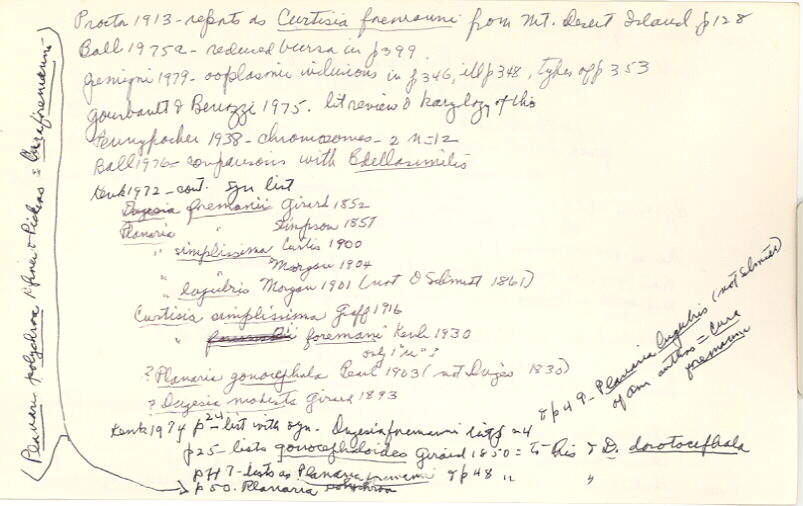 Procter 1913 - reports as Curtisia foremanii from Mt. Desert Island p128
Ball 1975a - reduced bursa in p399.
Gremigni 1979 - ooplasmic inclusions in p346, ill p348, types of p353
Gourbault & Benazzi 1975. lit review & karyology of this
Pennypacker 1938 - chromosomes - 2n=12
Ball 1976 - comparisons with Edellasimilis
Kenk 1972 - cont. syn list
Dugesia foremanii Girard 1852
Planaria " Simpson 1857
" simplissima Curtis 1900
" " Morgan 1904
" lugubris Morgan 1901 (not O Schmidt 1861)
Curtisia simplissima Graff 1916
" foremani Kenk 1930
only 1 "i" ?
? Planaria gonocephala Pearl 1903 (not Dugès 1830)
? Dugesia modesta Girard 1893
Kenk 1974 p24 - list with syn. Dugesia foremani lists =4
& p49 - Planaria lugubris (not Schmidt)
of Am authors = Cura
foremanii
p25 - lists gonocephaloides Girard 1850 = to this & D. dorotocephala
p47 - lists as Planaria foremani & p48 " "
p50. Planaria polychroa
(Planaria polychroa & Pickens = Cura foremanii)